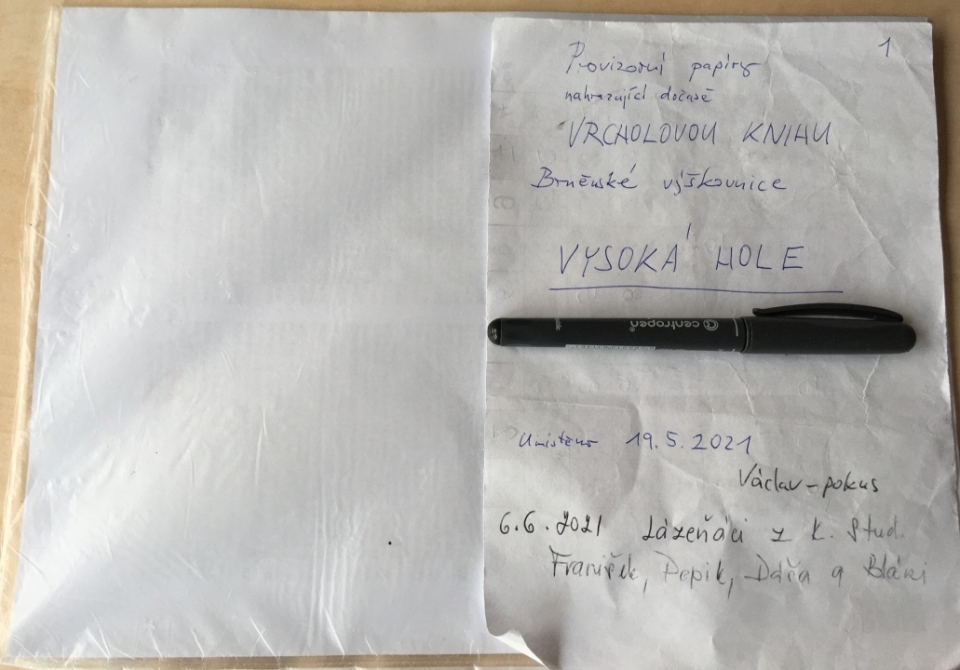 1
Provizorní papíry
nahrazující dočasě
VRCHOLOVOU KNIHU
Brněnské výškovnice
VYSOKÁ HOLE
centropen
Umístěno 19.5.2021
Václav - pokus
6.6.2021 Lázeňáci z K. Stud.
Franišek, Pepik, Dáša a